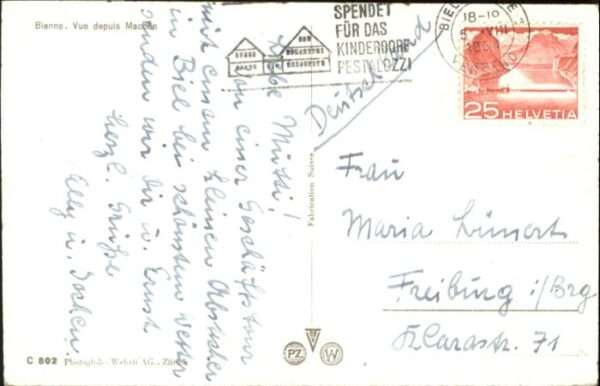 Bienne. Vue depuis Macolin
SPENDET
FÜR DAS
KINDERDORF
PESTALOZZI
BIEL
18-19
25 HELVETIA
Deutschland
Liebe Mutti!
Von einer Geschäftstour
mit einem kleinen Abstecher
in Biel bei schönstem Wetter
senden wir dir u. Ernst
herzl. Grüße
Elly u. Jochen.
Fabrication Suisse
Frau
Maria
Freiburg i/Brg
Klarastr. 71
C 802 Photoglob-Wehrli AG., Zürich
PZ W